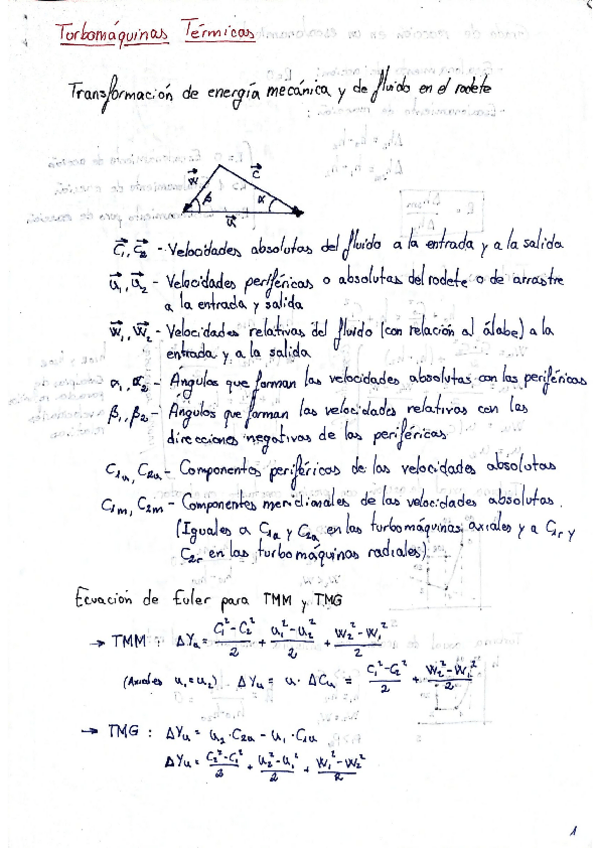 Turbomáquinas Térmicas
Transformación de energía mecánica y de fluido en el rodete
w c
β α
u
C₁, C₂ - Velocidades absolutas del fluido a la entrada y a la salida
u₁, u₂ - Velocidades periféricas o absolutas del rodete o de arrastre
a la entrada y salida
W₁, W₂ - Velocidades relativas del fluido (con relación al álabe) a la
entrada y a la salida
α₁, α₂ - Ángulos que forman las velocidades absolutas con las periféricas
β₁, β₂ - Ángulos que forman las velocidades relativas con las
direcciones negativas de las periféricas
C₁ᵤ, C₂ᵤ - Componentes periféricas de las velocidades absolutas
C₁m, C₂m - Componentes meridionales de las velocidades absolutas.
(Iguales a C₁a y C₂a en las turbomáquinas axiales y a C₁r y
C₂r en las turbomáquinas radiales)
Ecuación de Euler para TMM y TMG
→ TMM : ΔYu = (C₁²-C₂²)/2 + (u₁²-u₂²)/2 + (W₂²-W₁²)/2
(Axiales u₁=u₂) ΔYu = u · ΔCu = (C₁²-C₂²)/2 + (W₂²-W₁²)/2
→ TMG : ΔYu = u₂·C₂ᵤ - u₁·C₁ᵤ
ΔYu = (C₂²-C₁²)/2 + (u₂²-u₁²)/2 + (W₁²-W₂²)/2
1